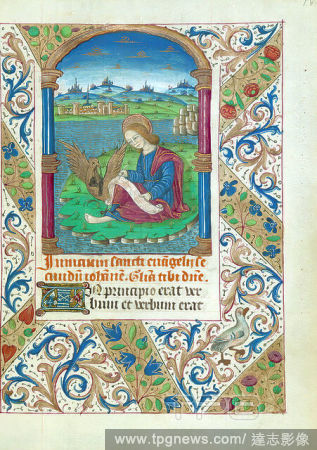 Inicium sancti euangelii se
cundū iohannē. Glīa tibi dn̄e.
In principio erat ver
bum et verbum erat
www.tpgnews.com/ 達志影像